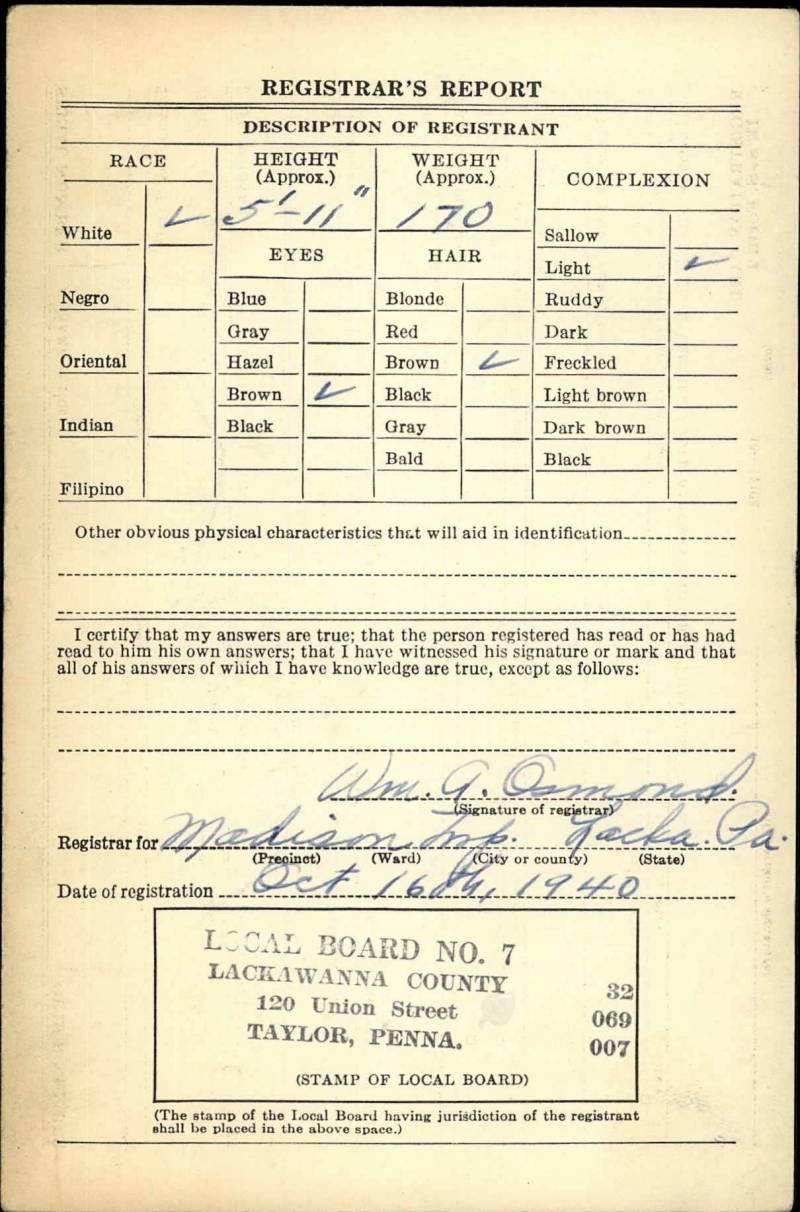 REGISTRAR'S REPORT
DESCRIPTION OF REGISTRANT
RACE
HEIGHT
(Approx.)
WEIGHT
(Approx.)
COMPLEXION
White ✓
5'-11"
170
EYES
HAIR
Sallow
Light ✓
Negro
Blue
Blonde
Ruddy
Gray
Red
Dark
Oriental
Hazel
Brown ✓
Freckled
Brown ✓
Black
Light brown
Indian
Black
Gray
Dark brown
Bald
Black
Filipino
Other obvious physical characteristics that will aid in identification
I certify that my answers are true; that the person registered has read or has had
read to him his own answers; that I have witnessed his signature or mark and that
all of his answers of which I have knowledge are true, except as follows:
Wm. G. Osmond.
(Signature of registrar)
Registrar for Madison Twp. Lacka. Pa.
(Precinct) (Ward) (City or county) (State)
Date of registration Oct 16th, 1940
LOCAL BOARD NO. 7
LACKAWANNA COUNTY 32
120 Union Street 069
TAYLOR, PENNA. 007
(STAMP OF LOCAL BOARD)
(The stamp of the Local Board having jurisdiction of the registrant
shall be placed in the above space.)